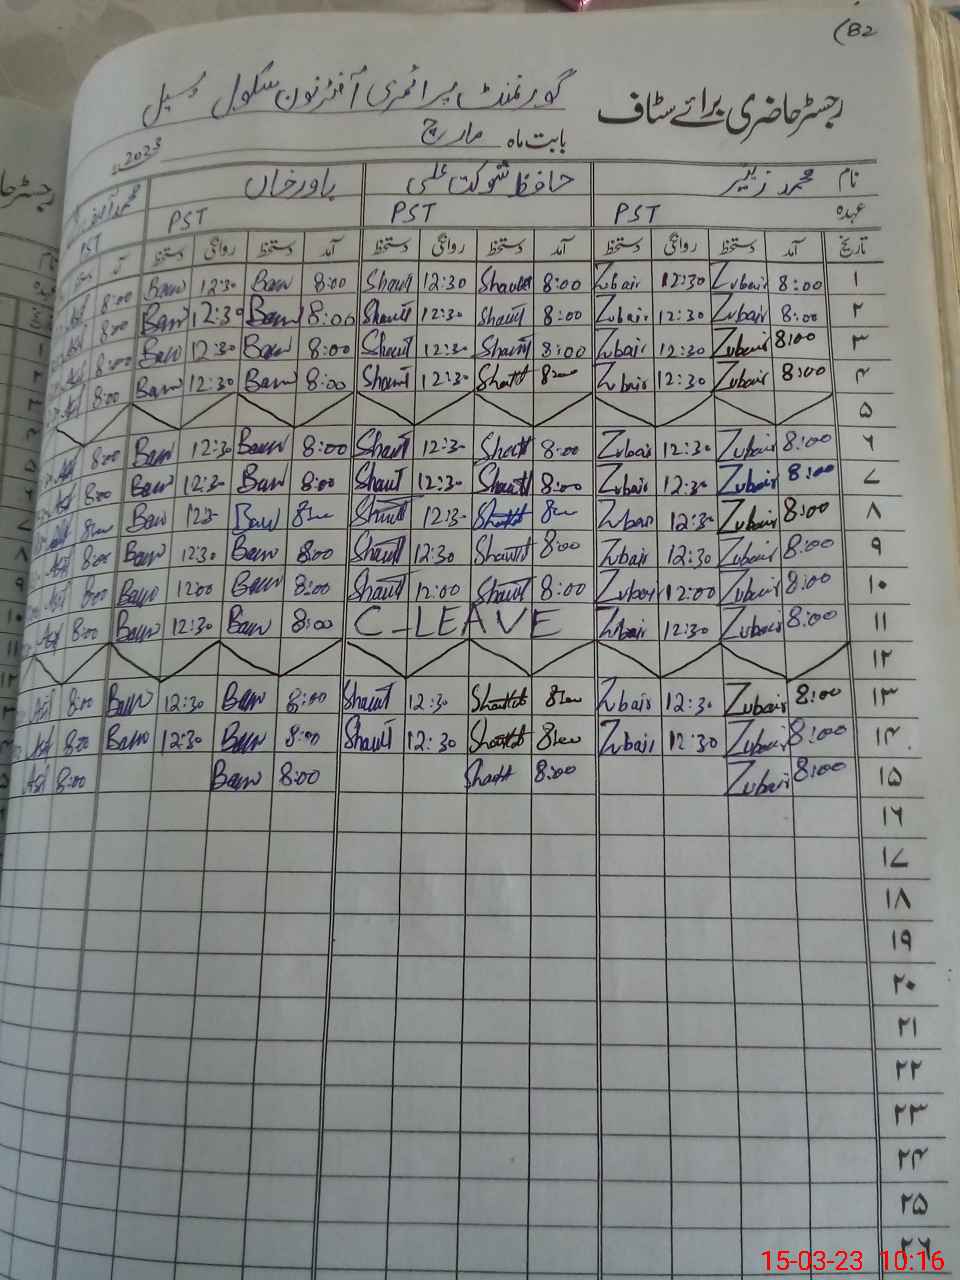 (B2
رجسٹر حاضری برائے سٹاف گورنمنٹ پرائمری آفٹرنون سکول
بابت ماہ مارچ 2023
نام محمد زبیر حافظ شوکت علی یاور خان
عہدہ PST PST PST PST
تاریخ آمد دستخط روانگی دستخط آمد دستخط روانگی دستخط آمد دستخط روانگی دستخط آمد
۱ 8:00 Zubair 12:30 Zubair 8:00 Shaut 12:30 Shaut 8:00 Baw 12:30 Baw 8:00
۲ 8:00 Zubair 12:30 Zubair 8:00 Shaut 12:30 Shaut 8:00 Baw 12:30 Baw 8:00
۳ 8:00 Zubair 12:30 Zubair 8:00 Shaut 12:30 Shaut 8:00 Baw 12:30 Baw 8:00
۴ 8:00 Zubair 12:30 Zubair 8:00 Shaut 12:30 Shaut 8:00 Baw 12:30 Baw 8:00
۵
۶ 8:00 Zubair 12:30 Zubair 8:00 Shaut 12:30 Shaut 8:00 Baw 12:30 Baw 8:00
۷ 8:00 Zubair 12:30 Zubair 8:00 Shaut 12:30 Shaut 8:00 Baw 12:30 Baw 8:00
۸ 8:00 Zubair 12:30 Zubair 8:00 Shaut 12:30 Shaut 8:00 Baw 12:30 Baw 8:00
۹ 8:00 Zubair 12:30 Zubair 8:00 Shaut 12:30 Shaut 8:00 Baw 12:30 Baw 8:00
۱۰ 8:00 Zubair 12:00 Zubair 8:00 Shaut 12:00 Shaut 8:00 Baw 12:00 Baw 8:00
۱۱ 8:00 Zubair 12:30 Zubair C-LEAVE 8:00 Baw 12:30 Baw 8:00
۱۲
۱۳ 8:00 Zubair 12:30 Zubair 8:00 Shaut 12:30 Shaut 8:00 Baw 12:30 Baw 8:00
۱۴ 8:00 Zubair 12:30 Zubair 8:00 Shaut 12:30 Shaut 8:00 Baw 12:30 Baw 8:00
۱۵ 8:00 Zubair 8:00 Shaut 8:00 Baw 8:00
۱۶
۱۷
۱۸
۱۹
۲۰
۲۱
۲۲
۲۳
۲۴
۲۵
۲۶
15-03-23 10:16